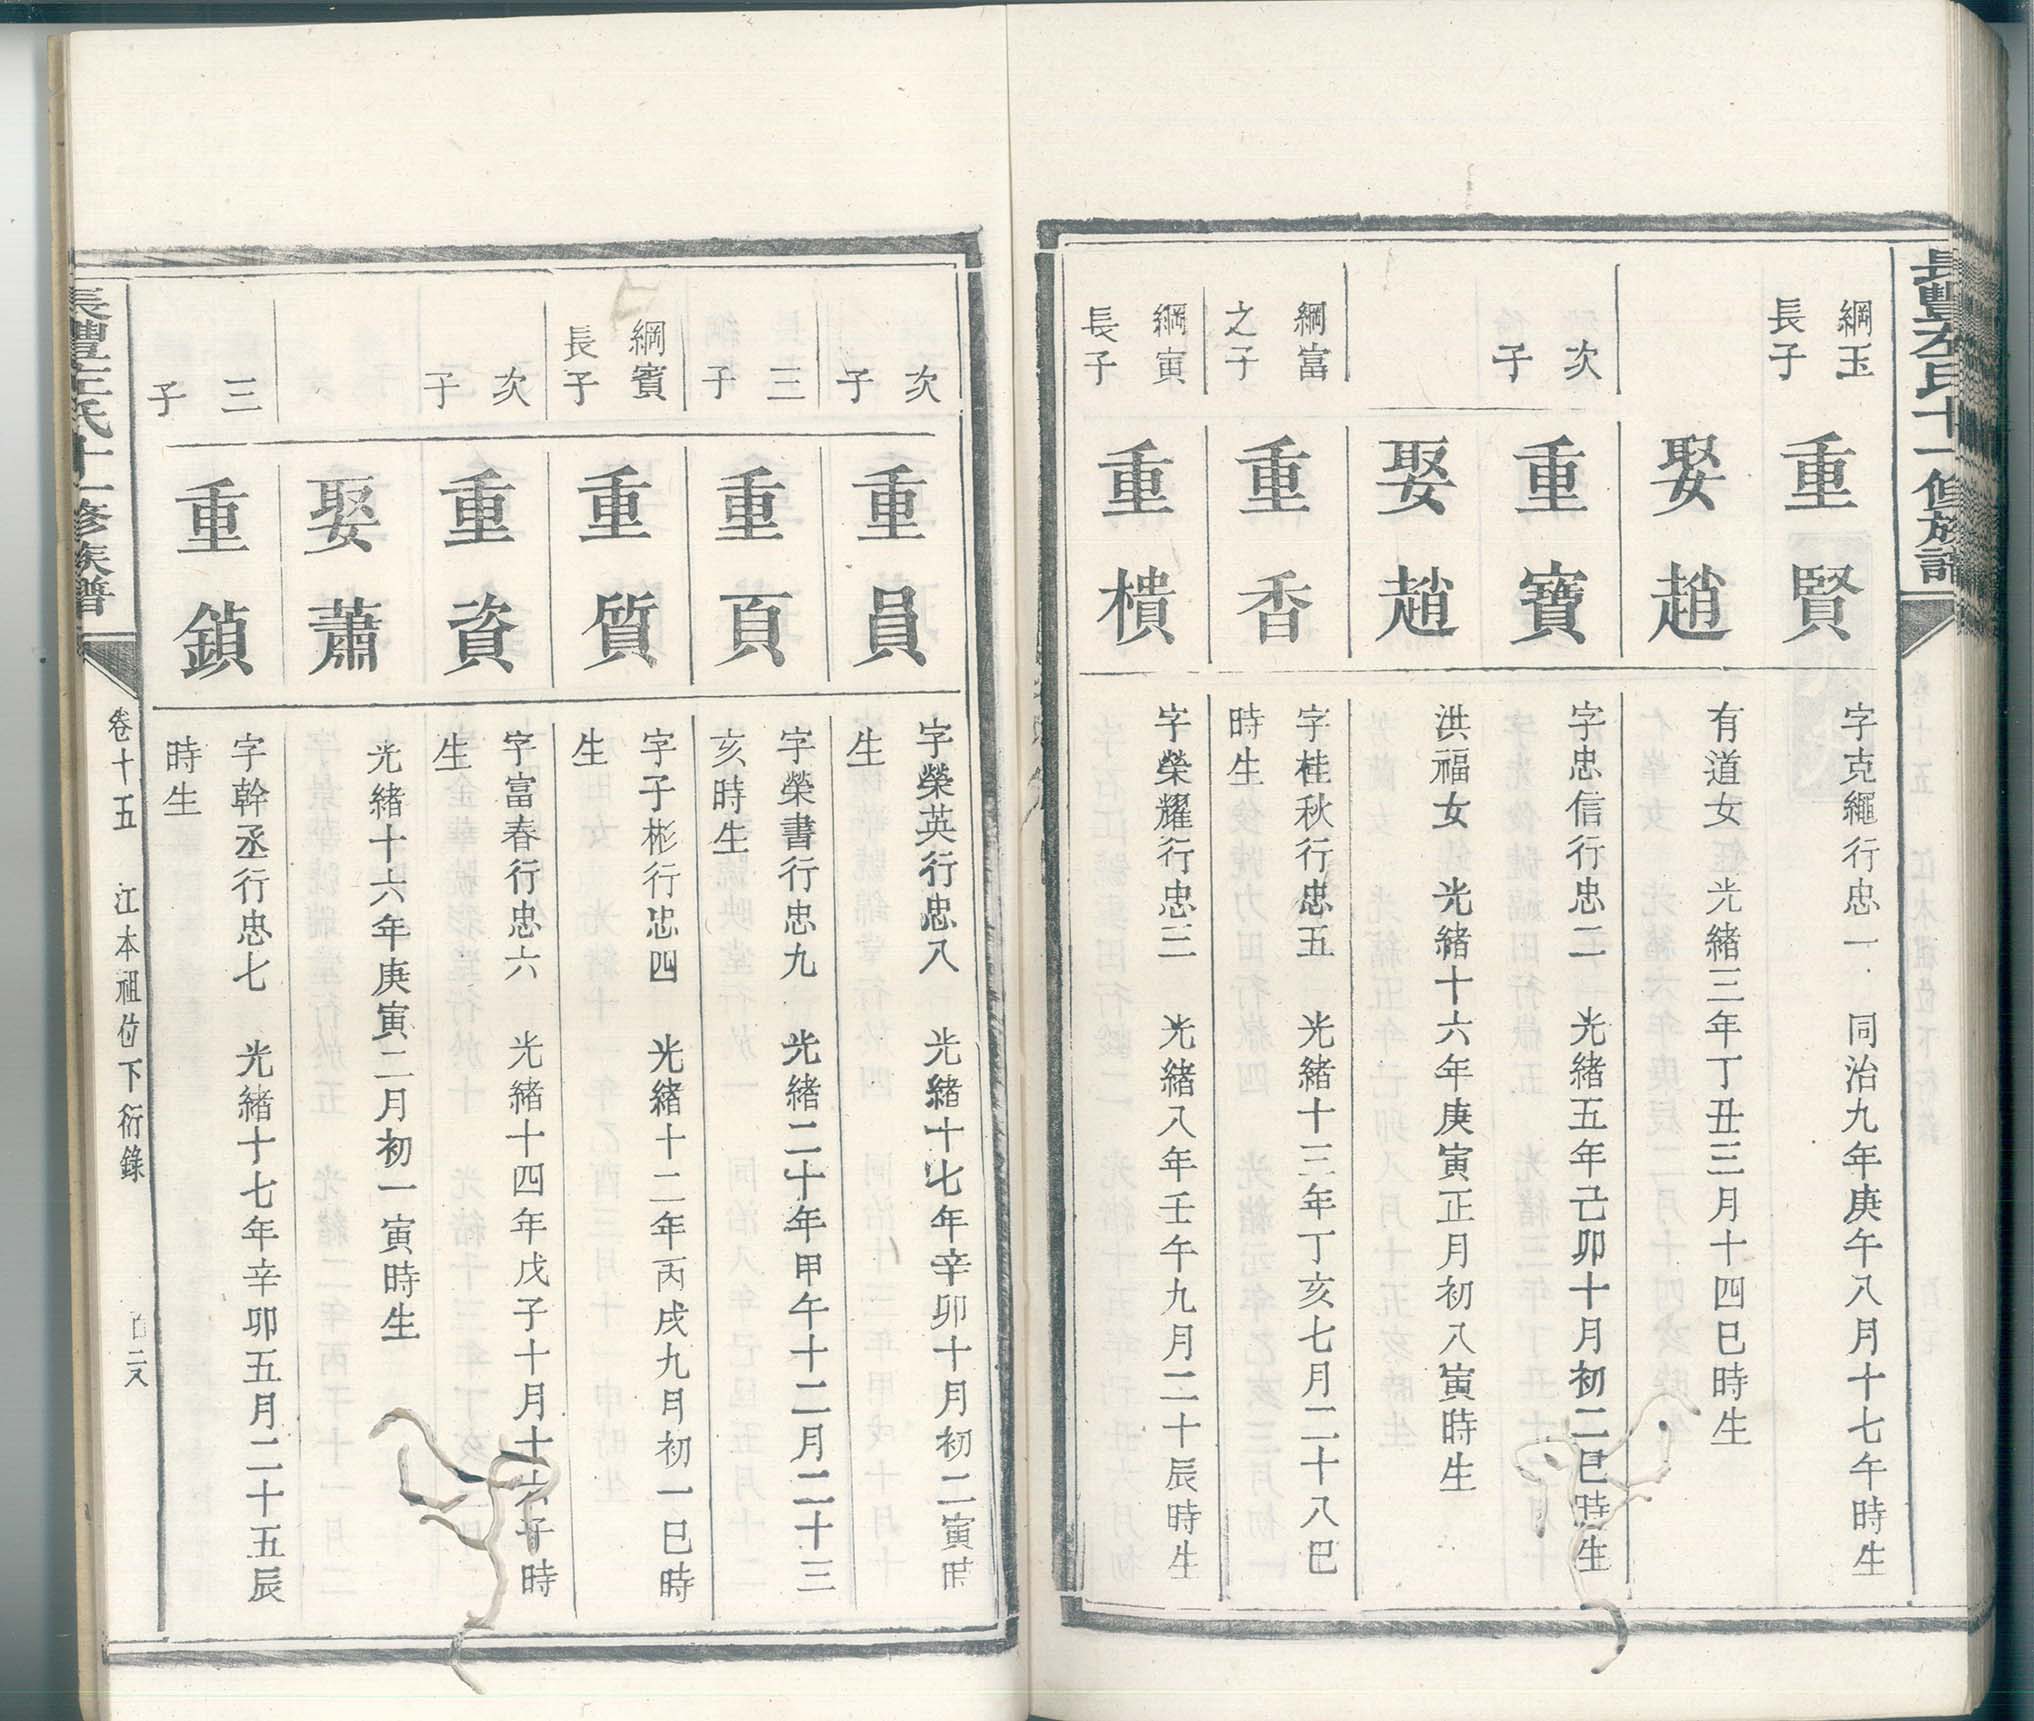 長豐左氏十一修族譜
綱玉
長子
重賢
字克繩行忠一 同治九年庚午八月十七午時生
娶趙
有道女 光緒三年丁丑三月十四巳時生
次
子
重寶
字忠信行忠二 光緒五年己卯十月初二巳時生
娶趙
洪福女 光緒十六年庚寅正月初八寅時生
綱富
之子
重香
字桂秋行忠五 光緒十三年丁亥七月二十八巳
時生
綱寅
長子
重樻
字榮耀行忠三 光緒八年壬午九月二十辰時生
次
子
重員
字榮英行忠八 光緒十七年辛卯十月初二寅時
生
三
子
重頁
字榮書行忠九 光緒二十年甲午十二月二十三
亥時生
綱賓
長子
重質
字子彬行忠四 光緒十二年丙戌九月初一巳時
生
次
子
重資
字富春行忠六 光緒十四年戊子十月十六子時
生
娶蕭
光緒十六年庚寅二月初一寅時生
三
子
重鎮
字幹丞行忠七 光緒十七年辛卯五月二十五辰
時生
長豐左氏十一修族譜
卷十五 江本祖位下衍錄